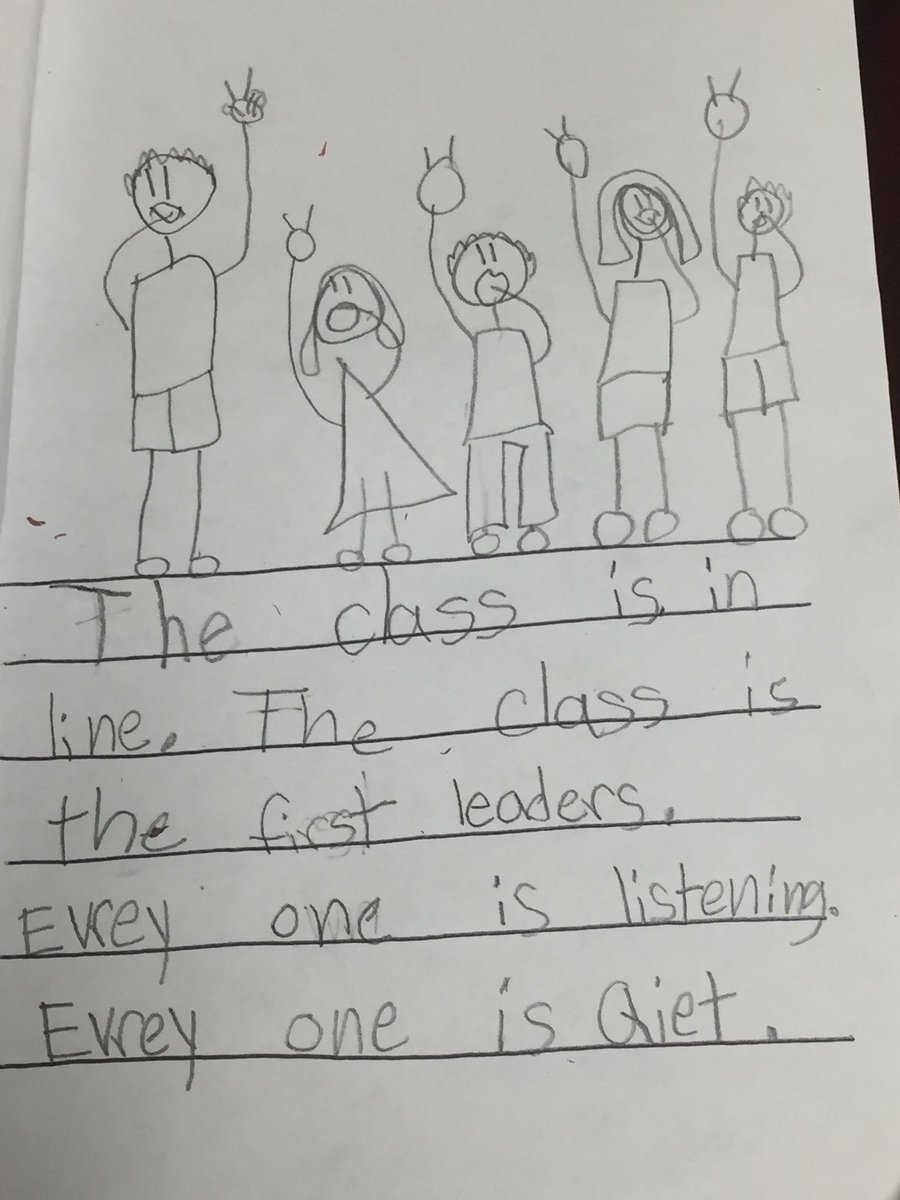 The class is in
line. The class is
the first leaders.
Evrey one is listening.
Evrey one is Qiet.